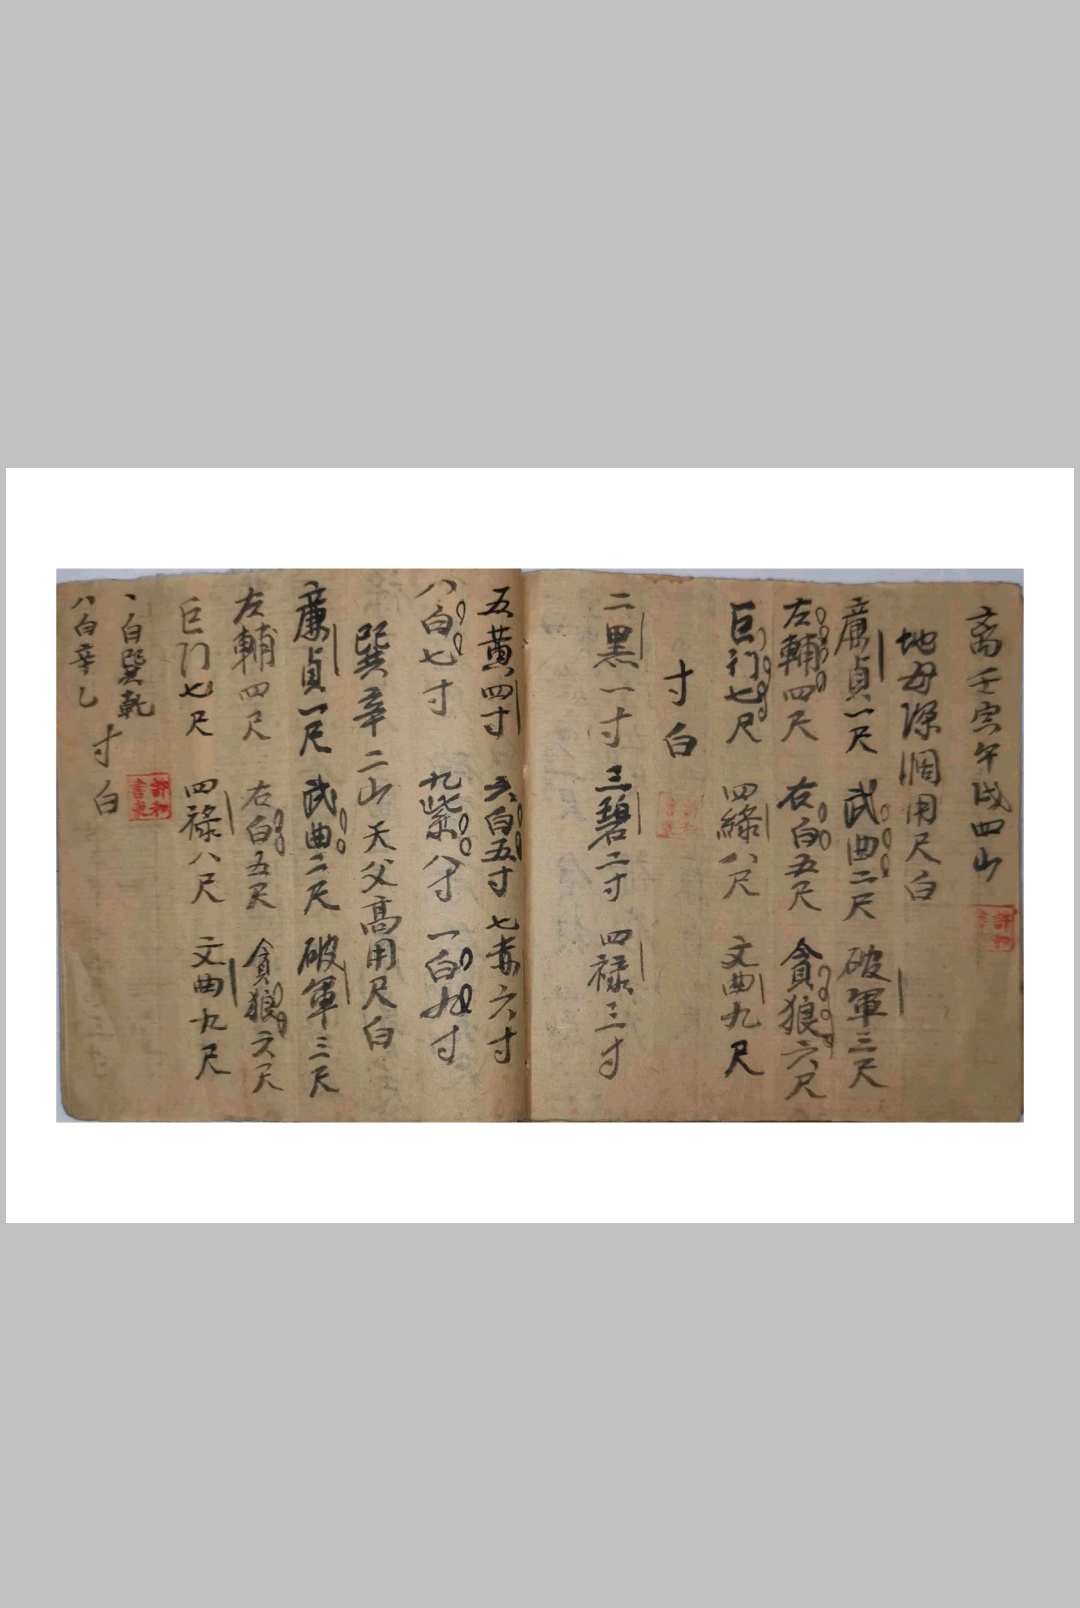 离壬寅午戌四山
地母深濶用尺白
廉貞一尺 武曲二尺 破軍三尺
左輔四尺 右白五尺 貪狼六尺
巨门七尺 四綠八尺 文曲九尺
寸白
二黑一寸 三碧二寸 四禄三寸
五黃四寸 六白五寸 七赤六寸
八白七寸 九紫八寸 一白九寸
巽辛二山天父高用尺白
廉貞一尺 武曲二尺 破軍三尺
左輔四尺 右白五尺 貪狼六尺
巨门七尺 四禄八尺 文曲九尺
丶白巽乾
寸白
八白辛乙